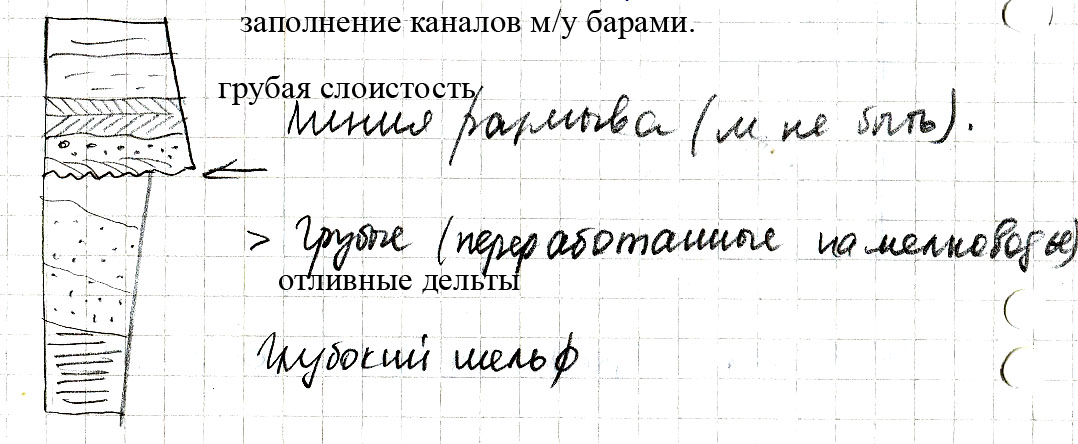 заполнение каналов м/у барами.
грубая слоистость
линия размыва (м не быть).
> Грубые (переработанные на мелководье)
отливные дельты
Глубокий шельф